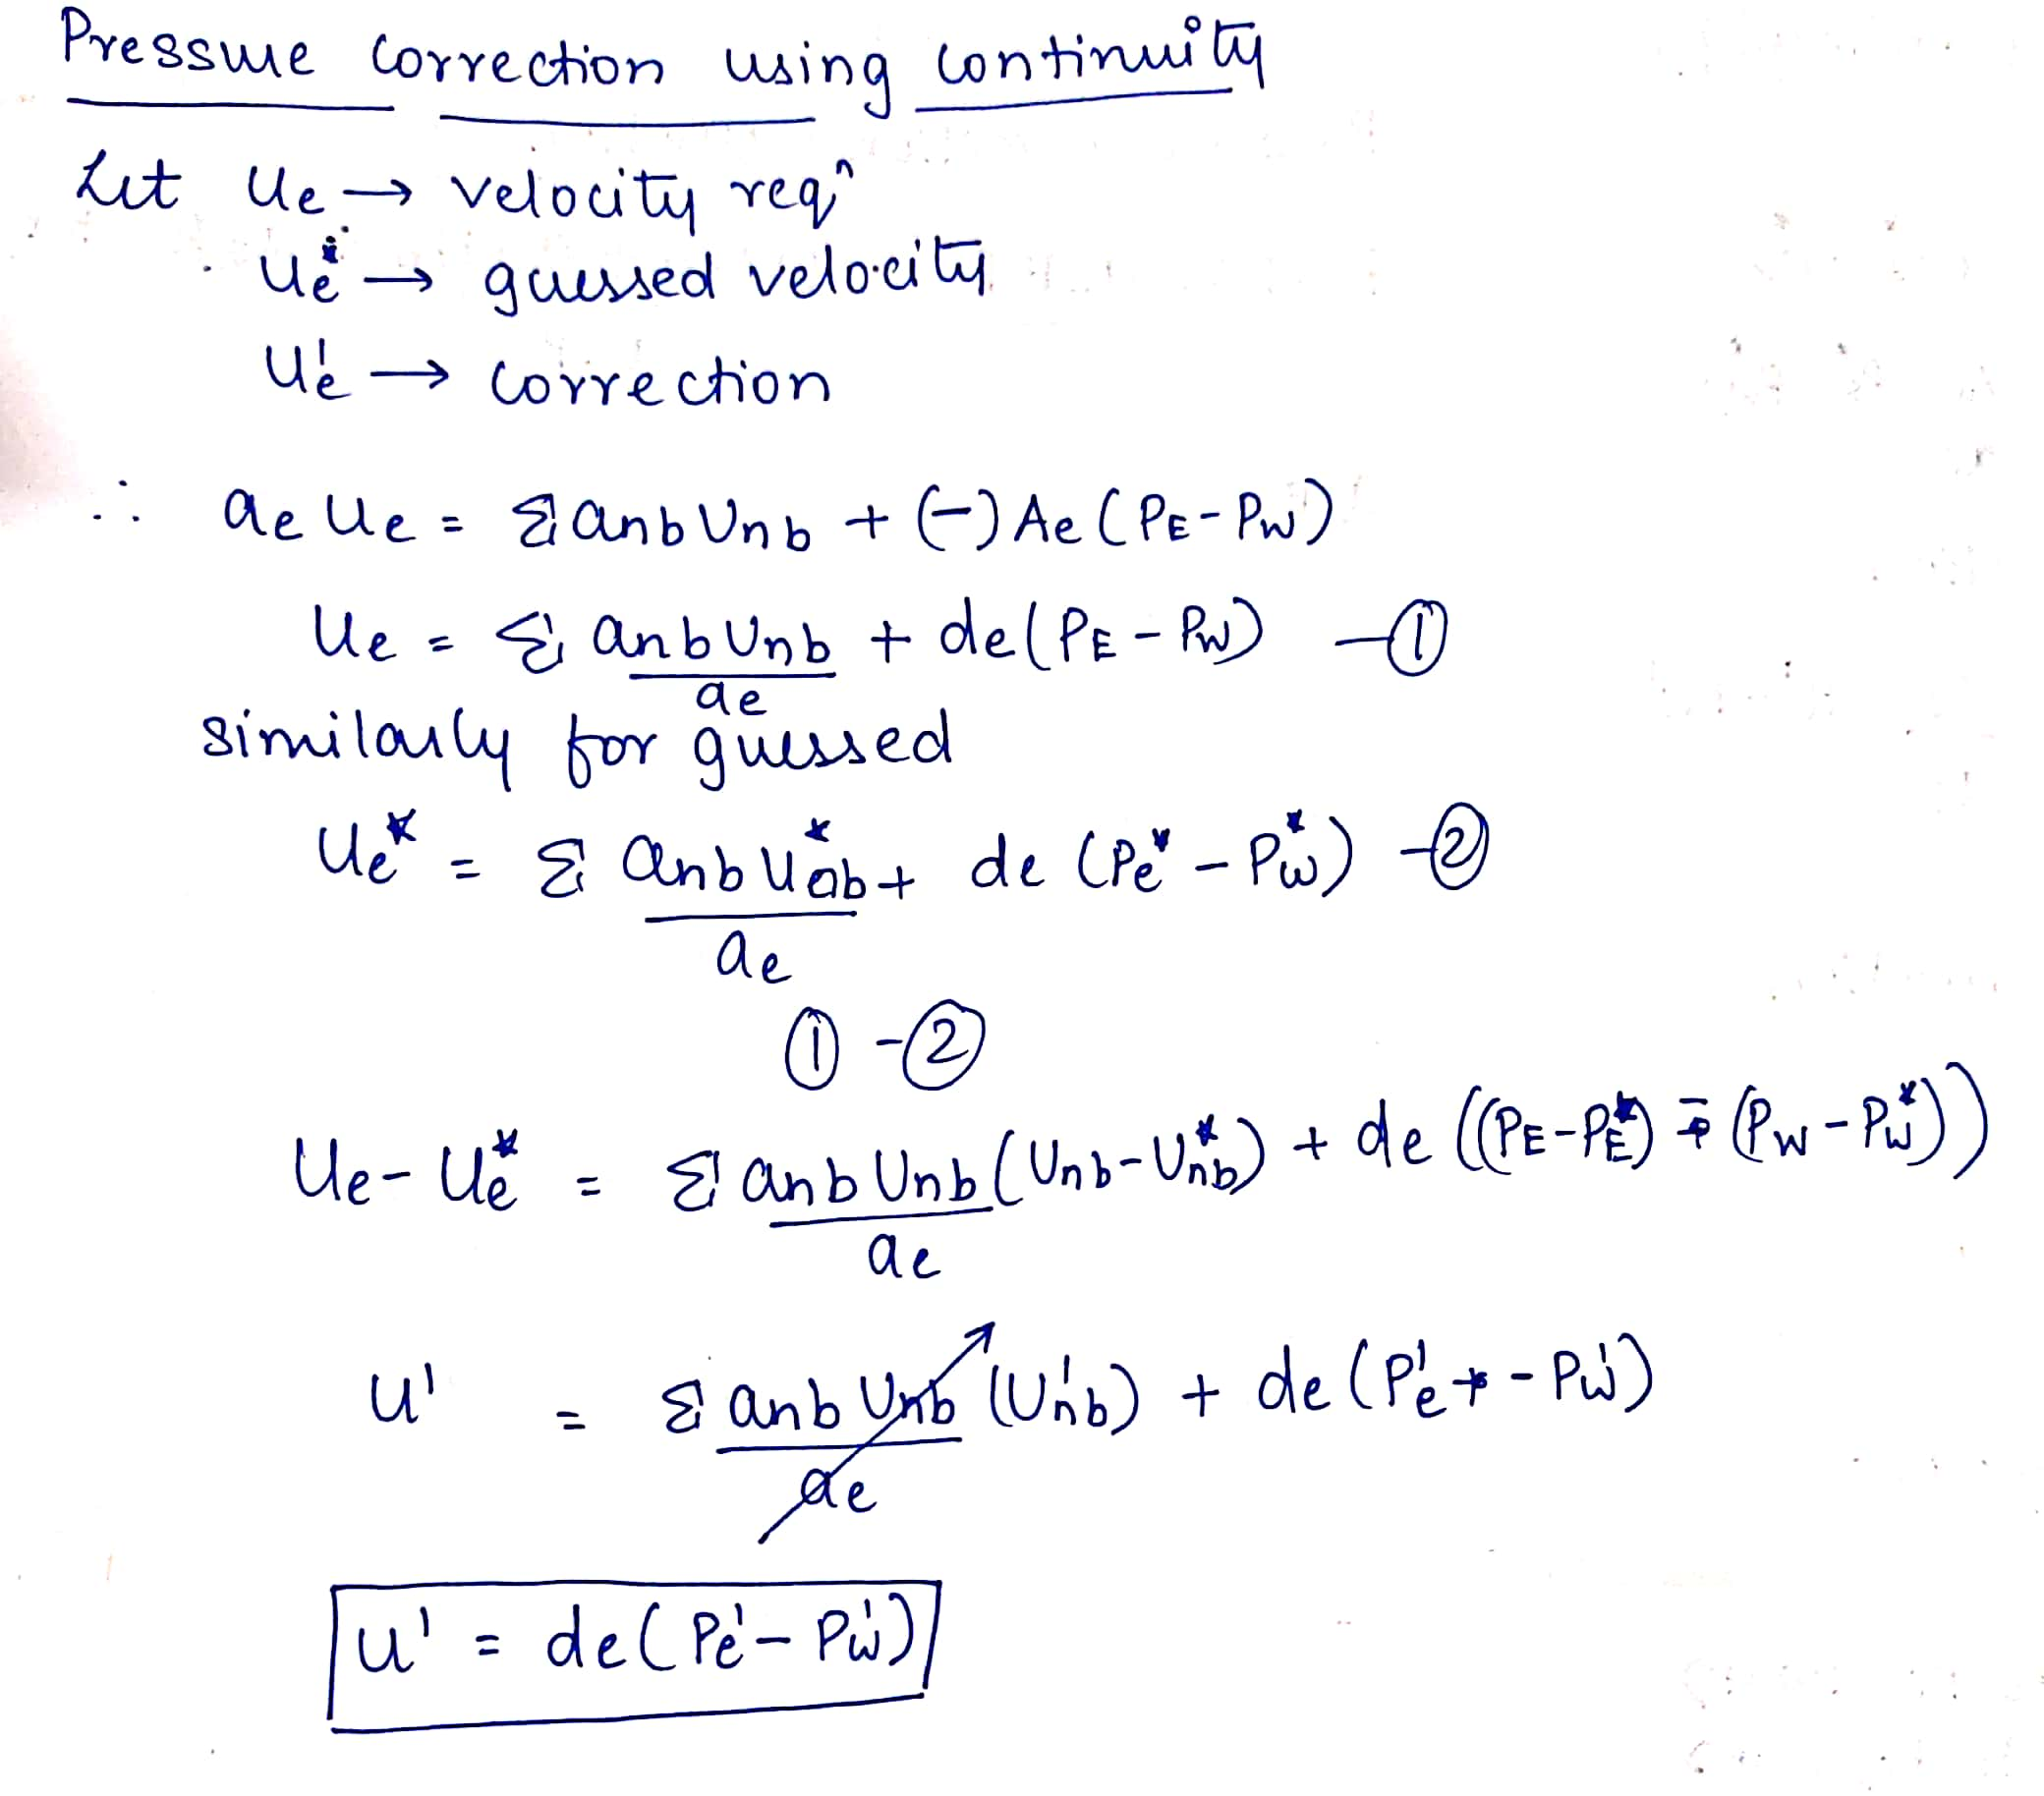 Pressure correction using continuity
Let Ue → velocity reqⁿ
Ue* → guessed velocity
Ue' → correction
∴ ae Ue = Σ anb Unb + (-) Ae (PE - PW)
Ue = Σ anb Unb / ae + de (PE - PW) — ①
similarly for guessed
Ue* = Σ anb Unb* / ae + de (Pe* - Pw*) — ②
① - ②
Ue - Ue* = Σ anb Unb (Unb - Unb*) / ae + de ((PE - PE*) - (PW - PW*))
U' = Σ anb Unb (Unb') / ae + de (Pe' - Pw')
U' = de (Pe' - Pw')